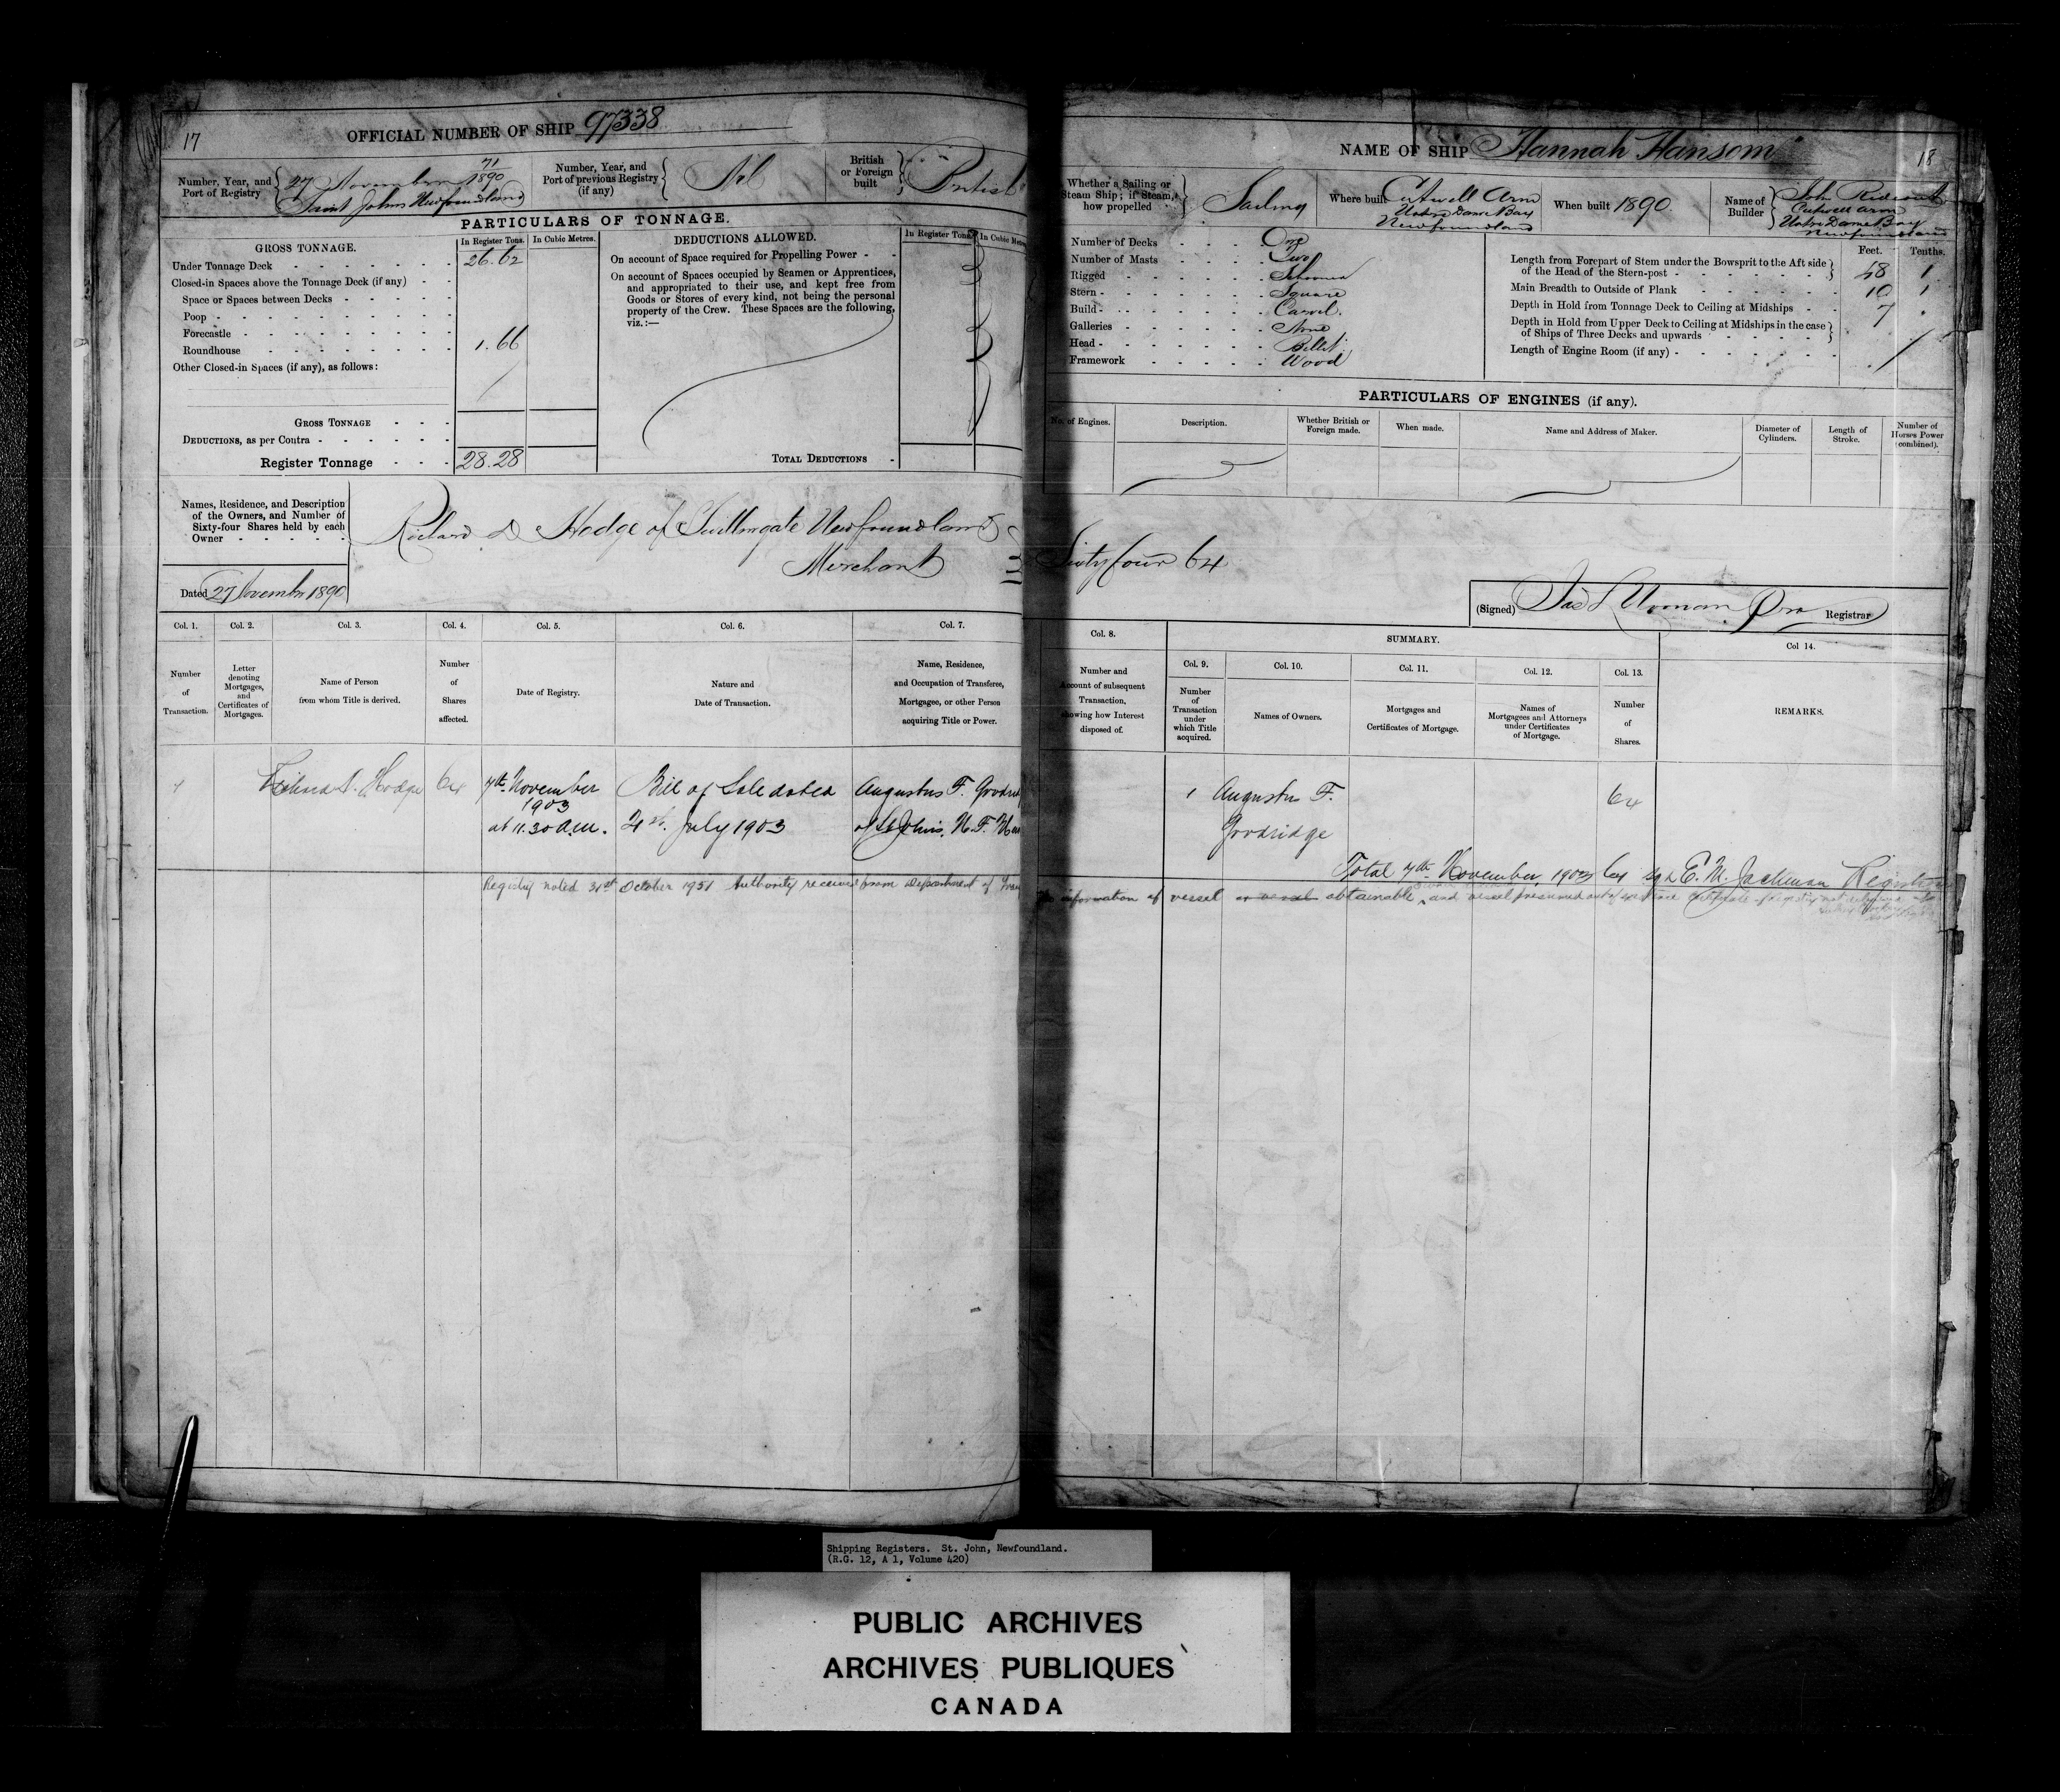 17
OFFICIAL NUMBER OF SHIP 97338
Number, Year, and
Port of Registry
71
27 November 1890
Saint Johns Newfoundland
Number, Year, and
Port of previous Registry
(if any)
Nil
British
or Foreign
built
British
PARTICULARS OF TONNAGE.
GROSS TONNAGE.
In Register Tons.
In Cubic Metres.
Under Tonnage Deck 26.62
Closed-in Spaces above the Tonnage Deck (if any)
Space or Spaces between Decks
Poop
Forecastle
Roundhouse 1.66
Other Closed-in Spaces (if any), as follows:
GROSS TONNAGE
DEDUCTIONS, as per Contra
Register Tonnage 28.28
DEDUCTIONS ALLOWED.
In Register Tons.
In Cubic
On account of Space required for Propelling Power
On account of Spaces occupied by Seamen or Apprentices,
and appropriated to their use, and kept free from
Goods or Stores of every kind, not being the personal
property of the Crew. These Spaces are the following,
viz.:—
TOTAL DEDUCTIONS
Names, Residence, and Description
of the Owners, and Number of
Sixty-four Shares held by each
Owner
Richard D Hodge of Twillingate Newfoundland
Merchant
Dated 27 November 1890
Col. 1.
Number
of
Transaction.
Col. 2.
Letter
denoting
Mortgages,
and
Certificates of
Mortgages.
Col. 3.
Name of Person
from whom Title is derived.
Col. 4.
Number
of
Shares
affected.
Col. 5.
Date of Registry.
Col. 6.
Nature and
Date of Transaction.
Col. 7.
Name, Residence,
and Occupation of Transferee,
Mortgagee, or other Person
acquiring Title or Power.
1 Hodge 64
7th November
1903
at 11.30 A.M.
Bill of Sale dated
July 1903
Augustus F.
of St Johns, N.F.
Registry noted 31st October 1951 Authority received from Department of
NAME OF SHIP Hannah Hansom
18
Whether a Sailing or
Steam Ship; if Steam,
how propelled
Sailing
Where built
Cutwell Arm
Notre Dame Bay
Newfoundland
When built 1890
Name of
Builder
John Rideout
Cutwell Arm
Notre Dame Bay
Newfoundland
Number of Decks One
Number of Masts Two
Rigged Schooner
Stern Square
Build Carvel
Galleries None
Head Billet
Framework Wood
Feet. Tenths.
Length from Forepart of Stem under the Bowsprit to the Aft side
of the Head of the Stern-post 48 1
Main Breadth to Outside of Plank 19 1
Depth in Hold from Tonnage Deck to Ceiling at Midships 7
Depth in Hold from Upper Deck to Ceiling at Midships in the case
of Ships of Three Decks and upwards
Length of Engine Room (if any)
PARTICULARS OF ENGINES (if any).
No. of Engines.
Description.
Whether British or
Foreign made.
When made.
Name and Address of Maker.
Diameter of
Cylinders.
Length of
Stroke.
Number of
Horses Power
(combined).
Sixty four 64
(Signed) Registrar
Col. 8.
Number and
Account of subsequent
Transaction,
showing how Interest
disposed of.
SUMMARY.
Col. 9.
Number
of
Transaction
under
which Title
acquired.
Col. 10.
Names of Owners.
Col. 11.
Mortgages and
Certificates of Mortgage.
Col. 12.
Names of
Mortgagees and Attorneys
under Certificates
of Mortgage.
Col. 13.
Number
of
Shares.
Col 14.
REMARKS.
1 Augustus F.
Goodridge
64
Total 7th November 1903 64 Sgd E. M. Jackman Registrar
information of vessel obtainable, and vessel presumed out of existence
Shipping Registers. St. John, Newfoundland.
(R.G. 12, A 1, Volume 420)
PUBLIC ARCHIVES
ARCHIVES PUBLIQUES
CANADA